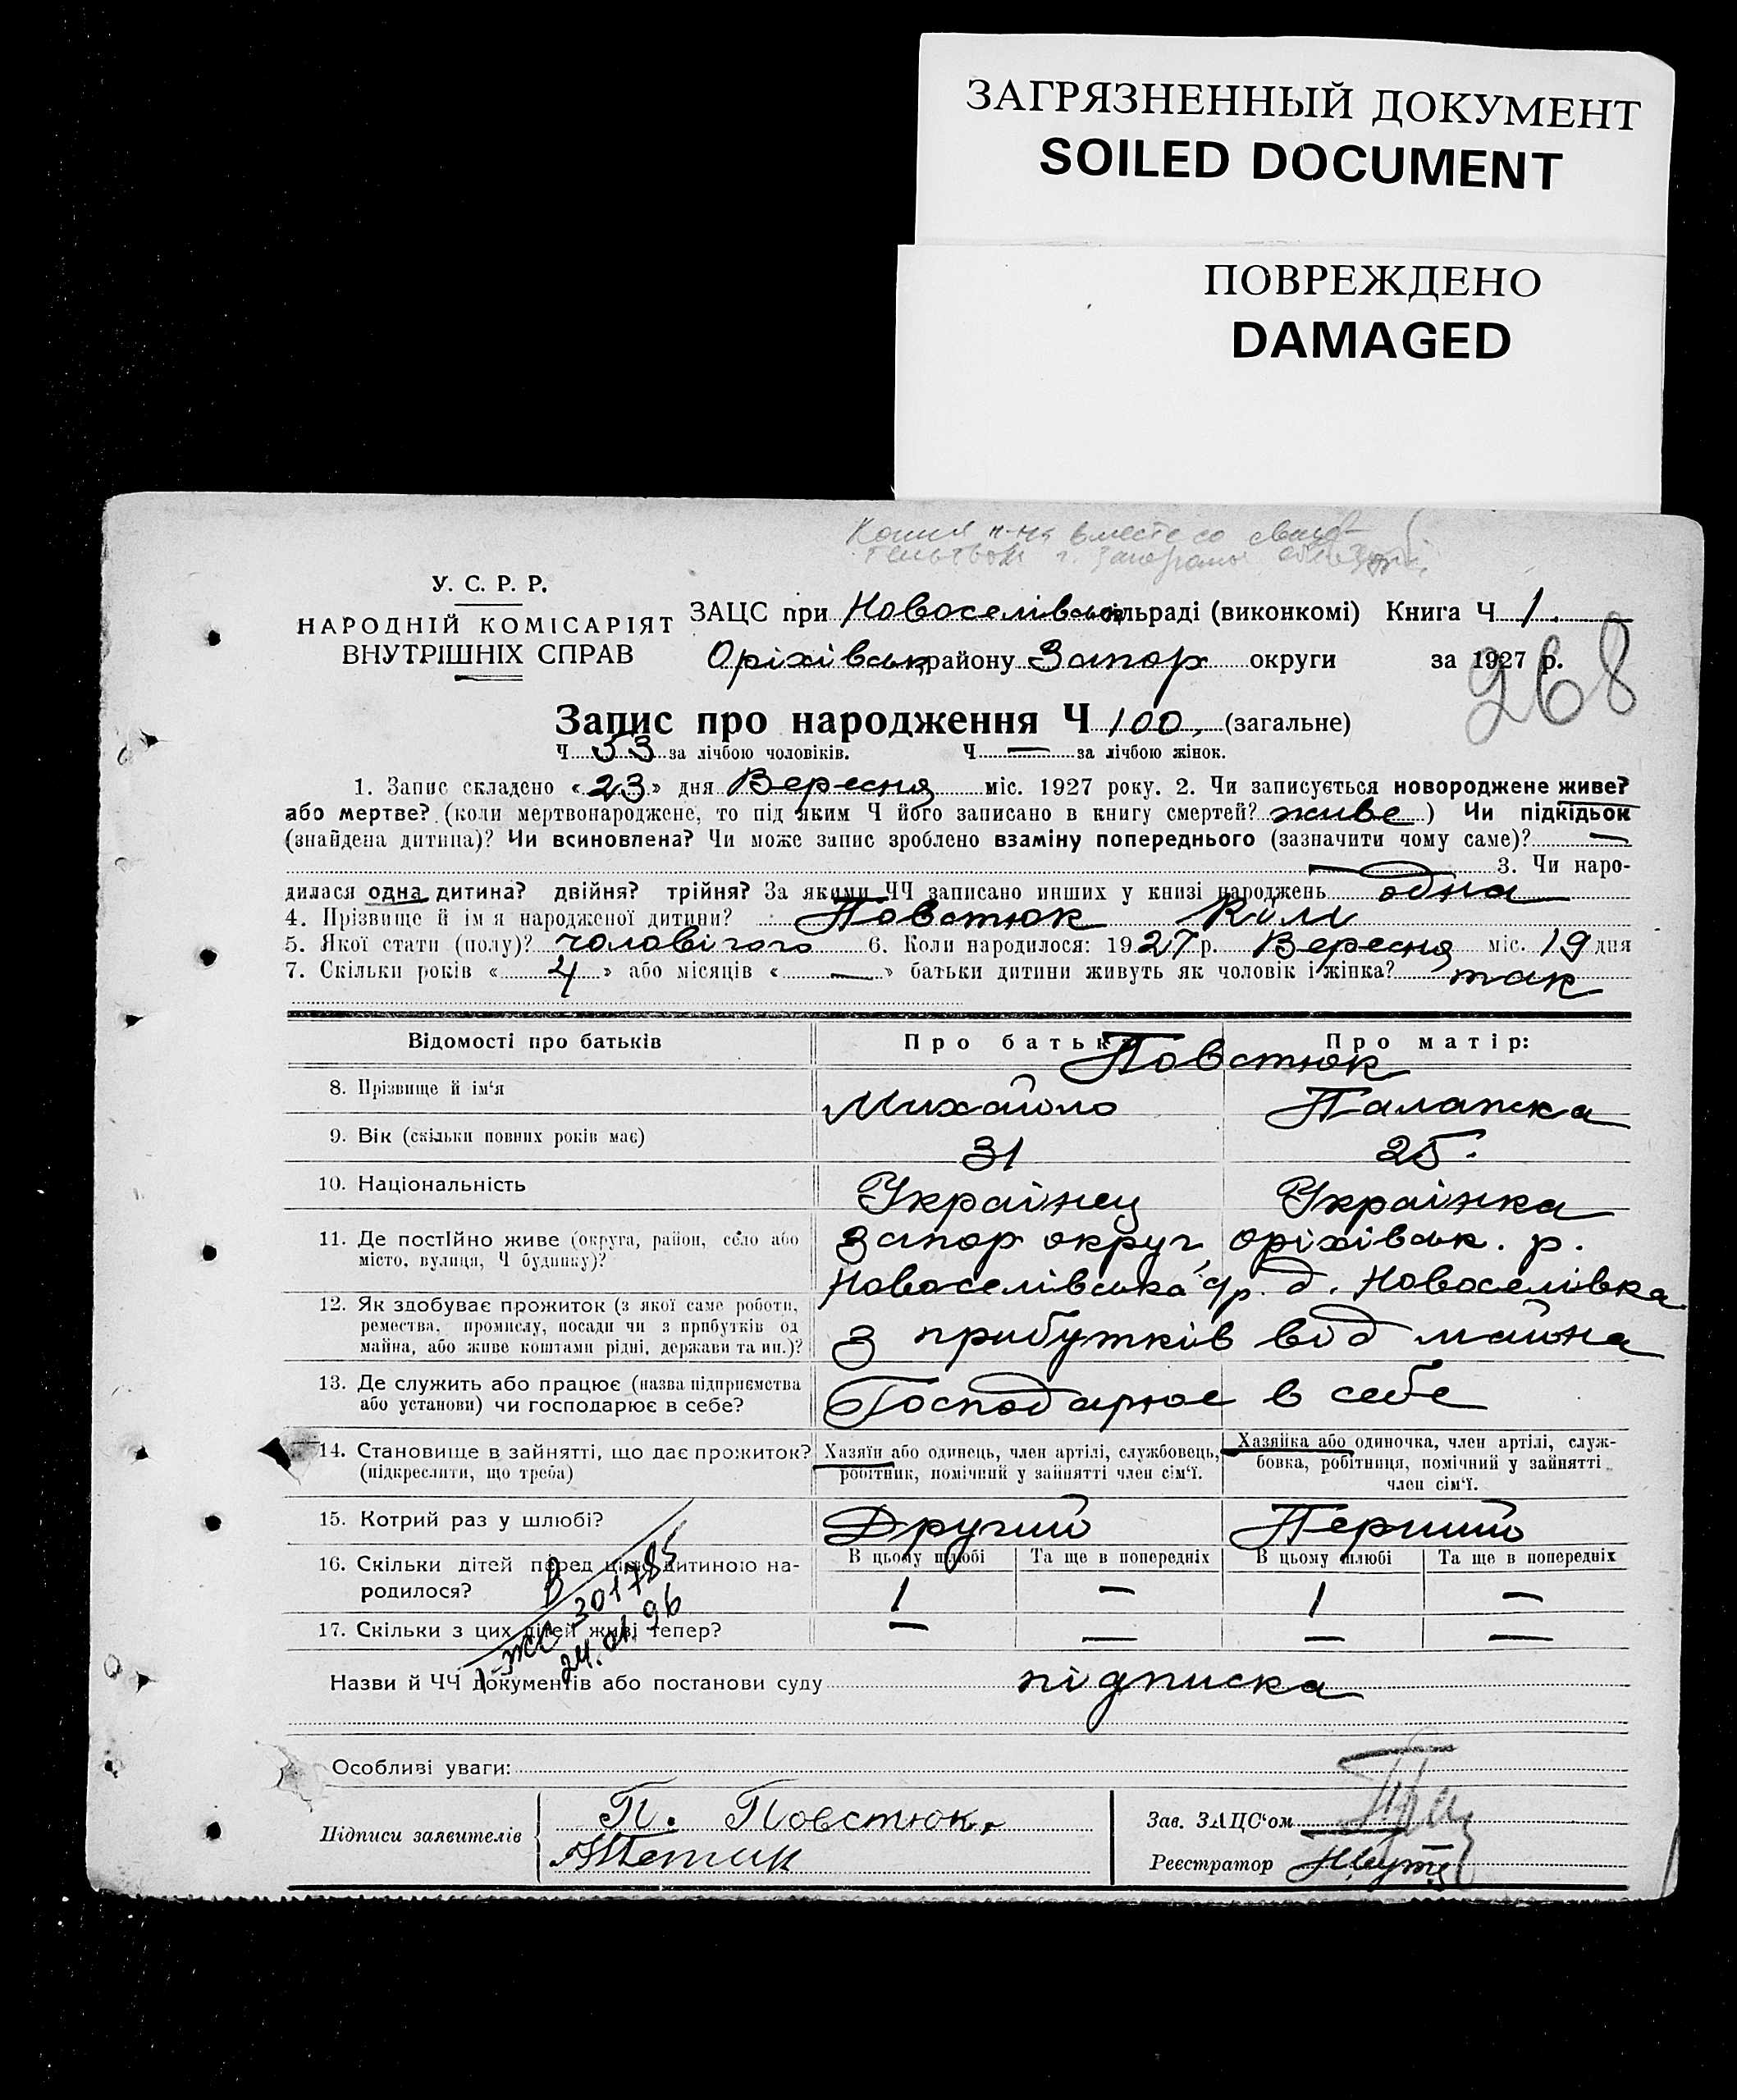 ЗАГРЯЗНЕННЫЙ ДОКУМЕНТ
SOILED DOCUMENT
ПОВРЕЖДЕНО
DAMAGED
Копия вместе со свидет
У. С. Р. Р.
НАРОДНІЙ КОМІСАРІЯТ
ВНУТРІШНІХ СПРАВ
ЗАЦС при Новоселівськ сільраді (виконкомі) Книга Ч 1.
Оріхівськ району Запор округи за 1927 р.
268
Запис про народження Ч 100, (загальне)
Ч 53 за лічбою чоловіків. Ч — за лічбою жінок.
1. Запис складено «23» дня Вересня міс. 1927 року. 2. Чи записується новороджене живе?
або мертве? (коли мертвонароджене, то під яким Ч його записано в книгу смертей? живе) Чи підкідьок
(знайдена дитина)? Чи всиновлена? Чи може запис зроблено взаміну попереднього (зазначити чому саме)? —
— 3. Чи наро-
дилася одна дитина? двійня? трійня? За якими ЧЧ записано инших у книзі народжень одна
4. Прізвище й ім'я народженої дитини? Повстюк Кім
5. Якої стати (полу)? чоловічого 6. Коли народилося: 1927 р. Вересня міс. 19 дня
7. Скільки років «4» або місяців «—» батьки дитини живуть як чоловік і жінка? так
Відомості про батьків Про батька Про матір:
Повстюк
8. Прізвище й ім'я Михайло Палажка
9. Вік (скільки повних років має) 31 25.
10. Національність Українец Українка
11. Де постійно живе (округа, район, село або
місто, вулиця, Ч будинку)?
Запор округ, оріхівськ. р.
Новоселівська с/р. д. Новоселівка
12. Як здобуває прожиток (з якої саме роботи,
ремества, промислу, посади чи з прибутків од
майна, або живе коштами рідні, держави та ин.)?
з прибутків від майна
13. Де служить або працює (назва підприємства
або установи) чи господарює в себе?
Господарює в себе
14. Становище в зайнятті, що дає прожиток?
(підкреслити, що треба)
Хазяїн або одинець, член артілі, службовець,
робітник, помічний у зайнятті член сім'ї.
Хазяйка або одиночка, член артілі, служ-
бовка, робітниця, помічний у зайнятті
член сім'ї.
15. Котрий раз у шлюбі? Другий Перший
16. Скільки дітей перед цією дитиною на-
родилося?
В цьому шлюбі Та ще в попередніх В цьому шлюбі Та ще в попередніх
1 — 1 —
17. Скільки з цих дітей живі тепер? — — — —
В
1-ЖС 301785
24.01.96
Назви й ЧЧ документів або постанови суду підписка
Особливі уваги:
Підписи заявителів П. Повстюк,
Зав. ЗАЦС'ом
Реєстратор